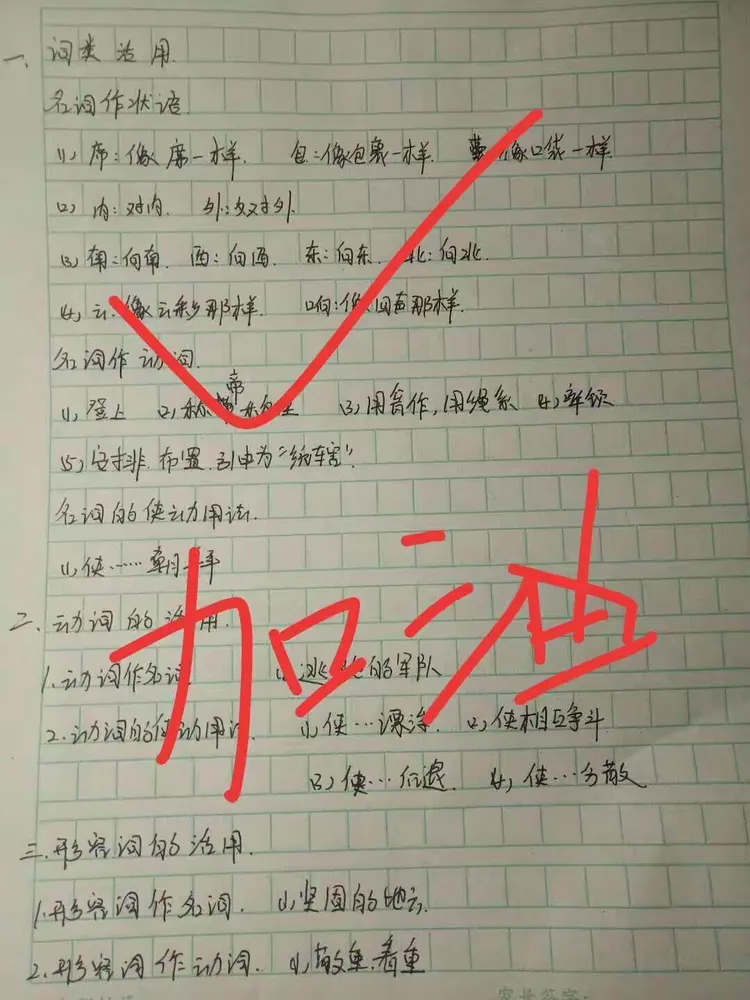 一、词类活用.
名词作状语.
(1)、席:像席一样. 包:像包裹一样. 像口袋一样.
(2)、内:对内. 外:对外.
(3)、南:向南. 西:向西. 东:向东. 北:向北.
(4)、云:像云彩那样. 响:像回声那样.
名词作动词.
帝
(1)、登上 (2)、称 (3)、用瓮作,用绳系 (4)、率领
(5)、安排.布置.引申为“统辖”.
名词的使动用法.
(1)、使……朝
二、动词的活用.
1.动词作名词 的军队
2.动词的使动用法. (1)、使… (2)、使相互争斗
(3)、使…后退. (4)、使…分散
三.形容词的活用.
1.形容词作名词. (1)、坚固的地方.
2.形容词作动词. (1)、敬重.看重
加油
家长签字: